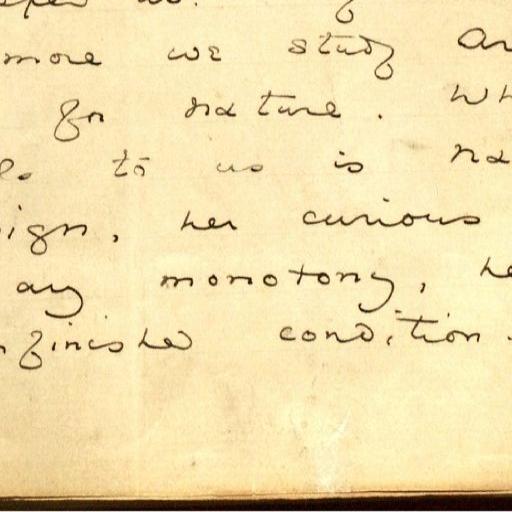 more we study Ar
for nature. Wh
ls to us is Na
ign, her curious
ary monotony, he
nfinished condition.